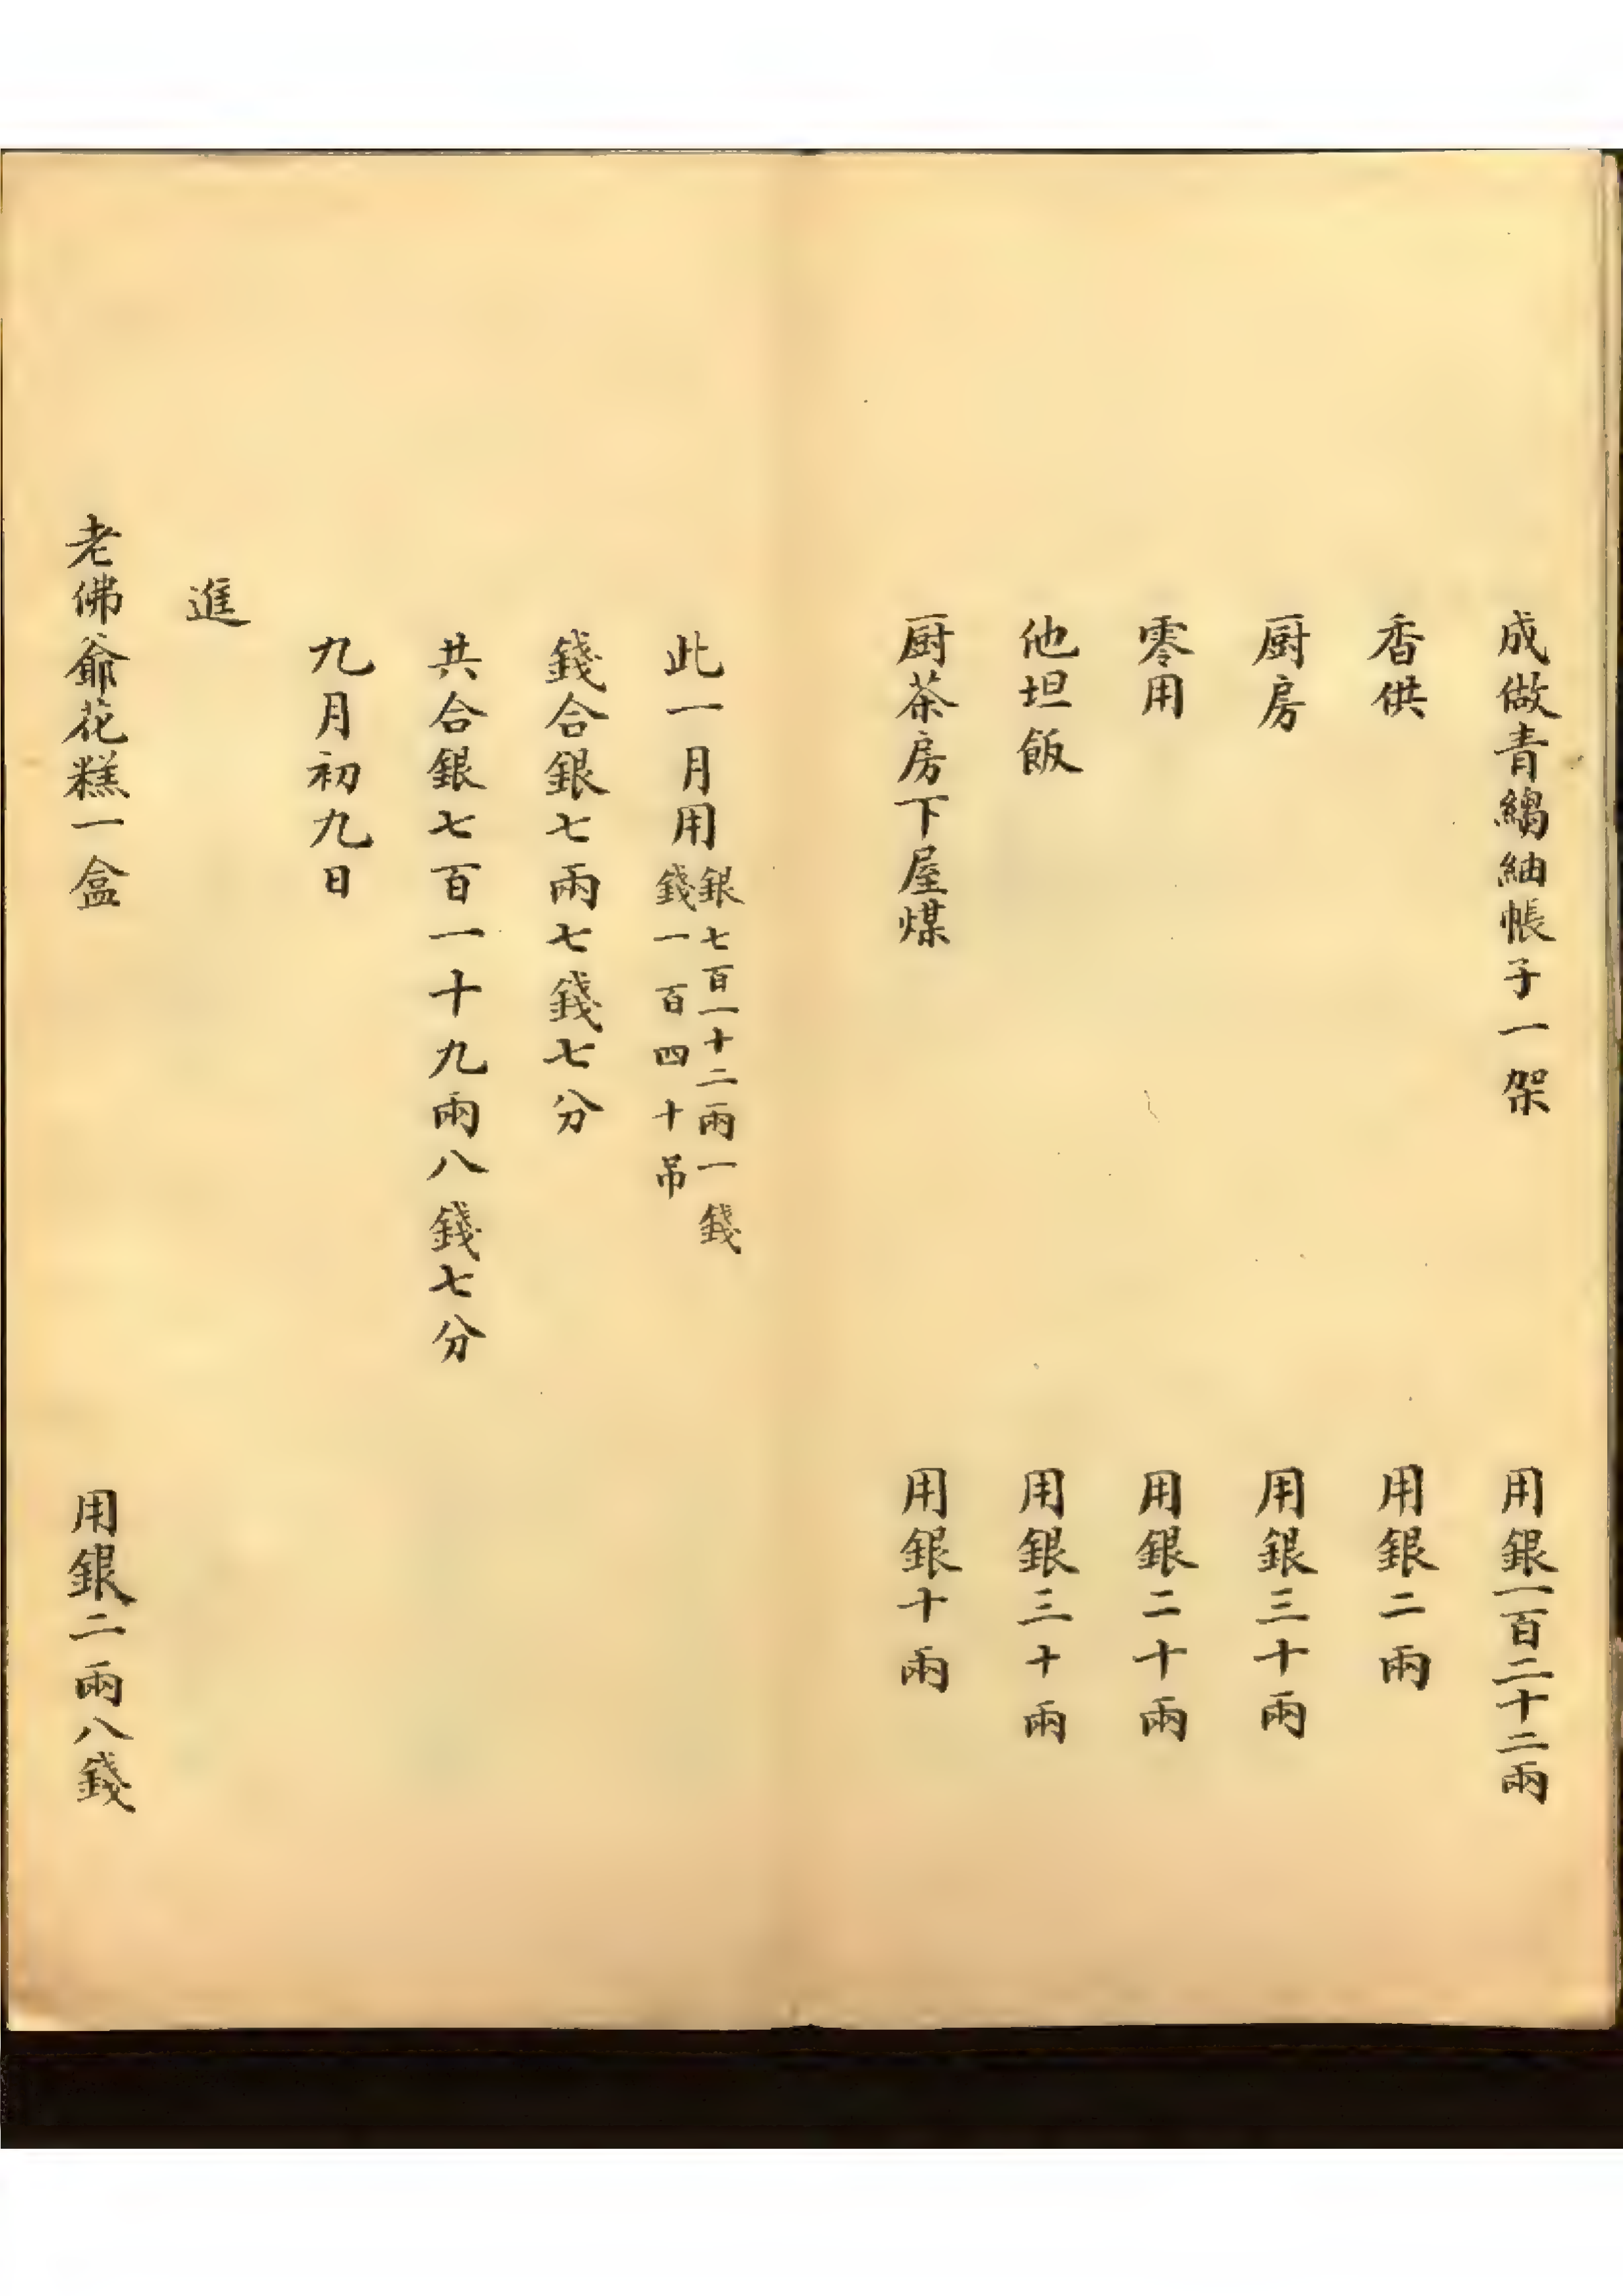 成做青縐紬帳子一架 用銀一百二十二兩
香供 用銀二兩
厨房 用銀三十兩
零用 用銀二十兩
他坦飯 用銀三十兩
厨茶房下屋煤 用銀十兩
此一月用銀七百一十二兩一錢
錢一百四十吊
錢合銀七兩七錢七分
共合銀七百一十九兩八錢七分
九月初九日
進
老佛爺花糕一盒 用銀二兩八錢